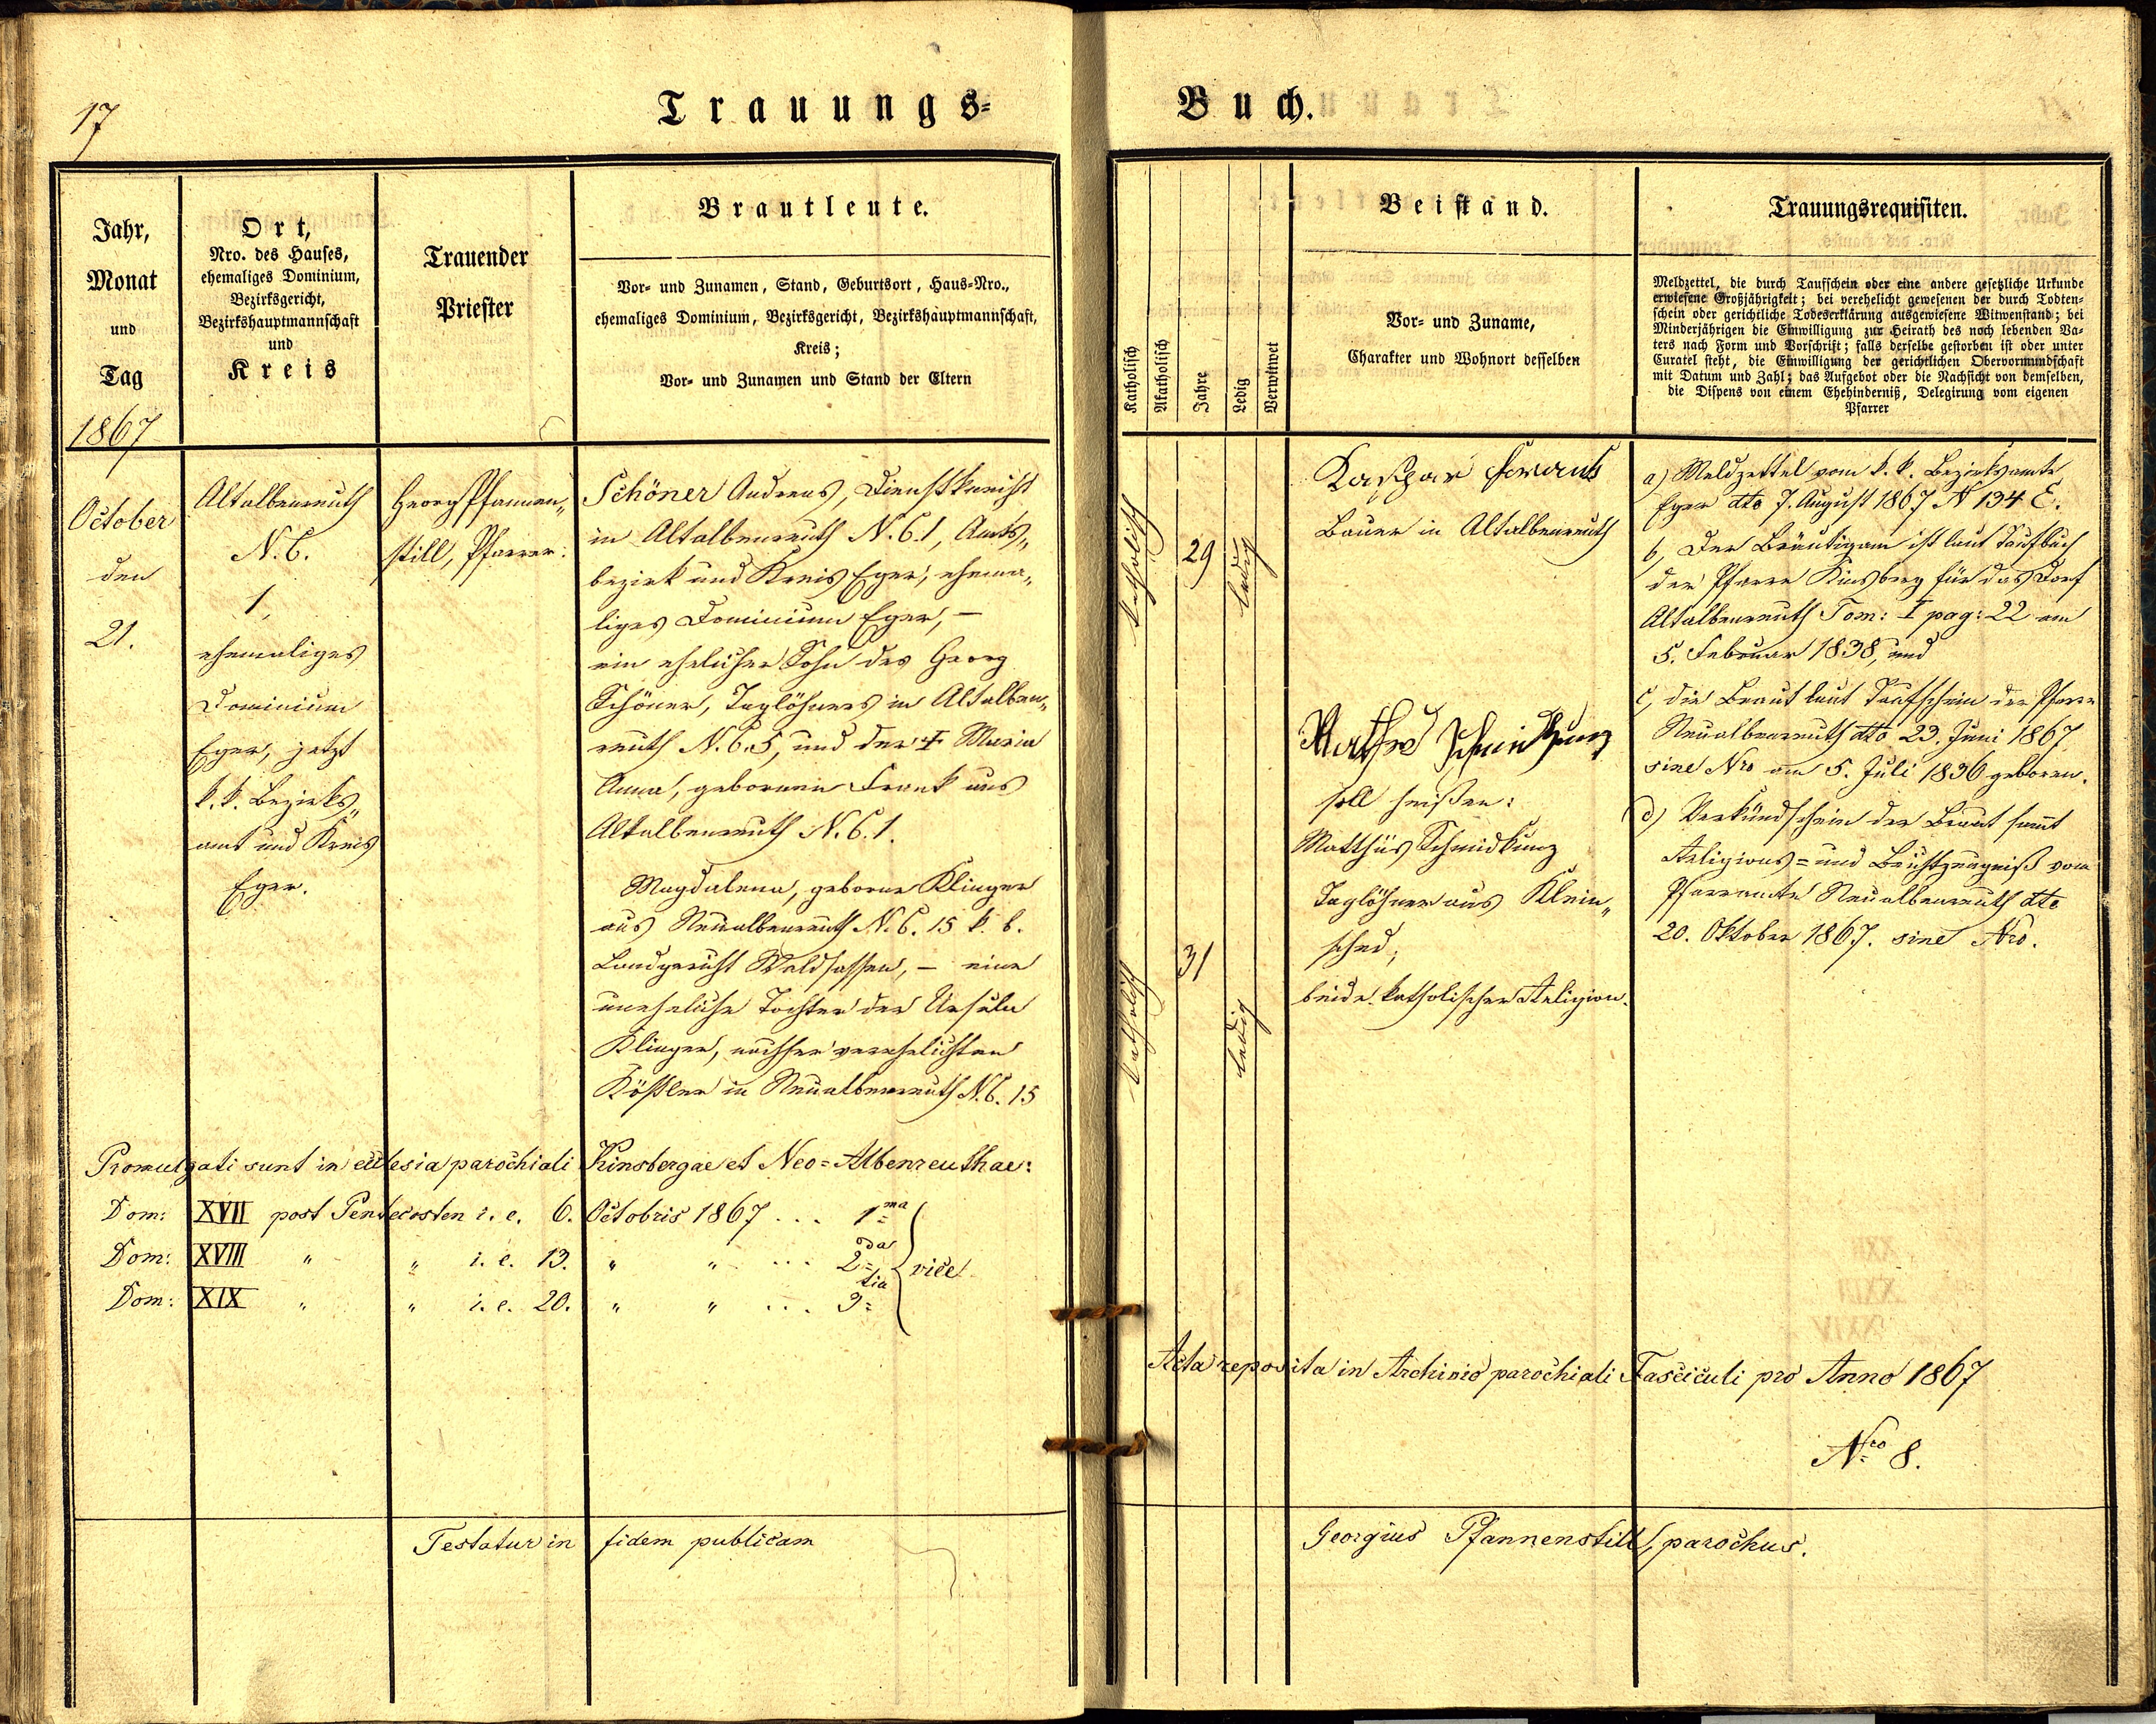 17
Trauungs-
Jahr,
Monat
und
Tag
1867
Ort,
Nro. des Hauses,
ehemaliges Dominium,
Bezirksgericht,
Bezirkshauptmannschaft
und
Kreis
Trauender
Priester
Brautleute.
Vor- und Zunamen, Stand, Geburtsort, Haus-Nro.,
ehemaliges Dominium, Bezirksgericht, Bezirkshauptmannschaft,
Kreis;
Vor- und Zunamen und Stand der Eltern
October
den
21.
Altalbenreuth
N. C.
1,
ehemaliges
Dominium
Eger, jetzt
k. k. Bezirks„
amt und Kreis
Eger.
Georg Pfannen„
still, Pfarrer.
Schöner Andreas, Dienstknecht
in Altalbenreuth N. C. 1, Amts„
bezirk und Kreis Eger, ehema„
liges Dominium Eger, –
ein ehelicher Sohn des Georg
Schöner, Taglöhners in Altalben„
reuth N. C. 5, und der † Maria
Anna, gebornen Frank aus
Altalbenreuth N. C. 1.
Magdalena, geborne Klinger
aus Neualbenreuth N. C. 15 k. b.
Landgericht Waldsassen, – eine
uneheliche Tochter der Ursula
Klinger, nachher verehelichten
Kößler in Neualbenreuth N. C. 15
Promulgati sunt in ecclesia parochiali Kinsbergae et Neo=Albenreuthae:
Dom: XVII post Pentecosten i. e. 6. Octobris 1867 ... 1ma
Dom: XVIII " " i. e. 13. " " ... 2da vice
Dom: XIX " " i. e. 20. " " ... 3tia
Testatur in fidem publicam
Buch.
Katholisch
Akatholisch
Jahre
Ledig
Verwitwet
Beistand.
Vor- und Zuname,
Charakter und Wohnort desselben
Trauungsrequisiten.
Meldzettel, die durch Taufschein oder eine andere gesetzliche Urkunde
erwiesene Großjährigkeit; bei verehelicht gewesenen der durch Todten-
schein oder gerichtliche Todeserklärung ausgewiesene Witwenstand; bei
Minderjährigen die Einwilligung zur Heirath des noch lebenden Va-
ters nach Form und Vorschrift; falls derselbe gestorben ist oder unter
Curatel steht, die Einwilligung der gerichtlichen Obervormundschaft
mit Datum und Zahl; das Aufgebot oder die Nachsicht von demselben,
die Dispens von einem Ehehinderniß, Delegirung vom eigenen
Pfarrer
katholisch
29
ledig
katholisch
31
ledig
Kaßpar
Bauer in Altalbenreuth
Schmidkunz
soll heißen:
Matthäs Schmidkunz
Taglöhner aus Klein„
sched;
beide katholischer Religion.
a) Meldzettel vom k. k. Bezirksamte
Eger dto 7. August 1867 N 134 E.
b, Der Bräutigam ist laut Taufbuch
der Pfarre Kinsberg für das Dorf
Altalbenreuth Tom: I pag: 22 am
5. Februar 1838, und
c, die Braut laut Taufschein der Pfarre
Neualbenreuth dto 23. Juni 1867
sine Nro am 5. Juli 1836 geboren.
d) Verkündschein der Braut sammt
Religions= und Beichtzeugniß vom
Pfarramte Neualbenreuth dto
20. Oktober 1867. sine Nro.
Acta reposita in Archivio parochiali Fasciculi pro Anno 1867
Nro 8.
Georgius Pfannenstill, parochus.